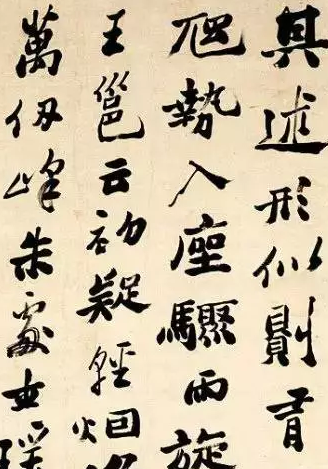 其述形似則有
虺勢入座驟雨旋
王邕云初疑輕烟
萬仞峰朱處士